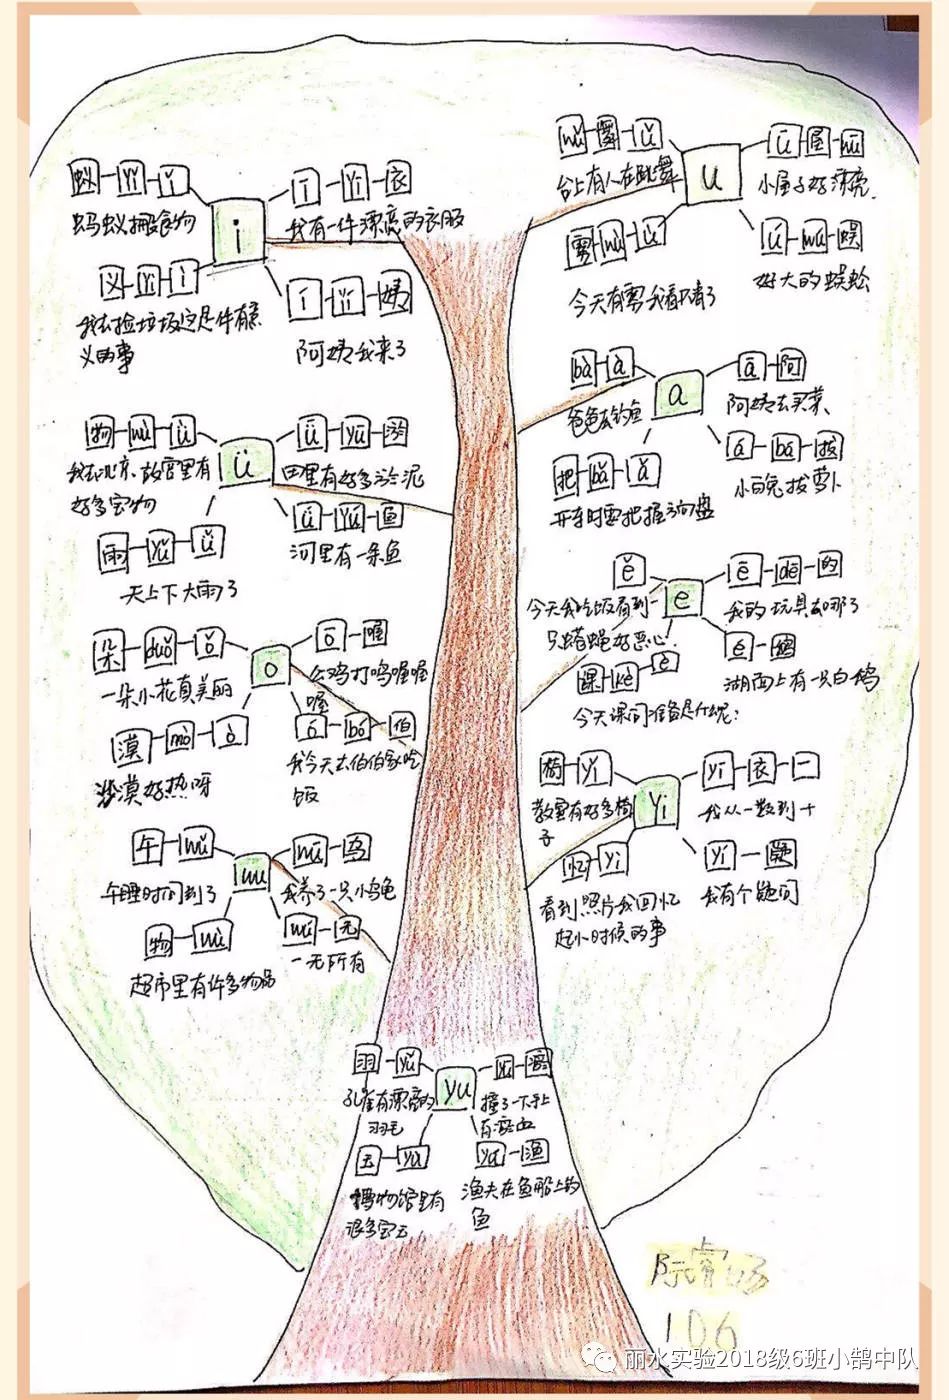 蚁 yǐ ǐ
蚂蚁搬食物
i
ī yī 衣
我有一件漂亮的衣服
义 yì ì
我去捡垃圾这是件有意
义的事
í yí 姨
阿姨我来了
wǔ 舞 ǔ
台上有人在跳舞
u
ū 屋 wū
小屋子好漂亮
雾 wù ù
今天有雾我看不清了
ú wú 蜈
好大的蜈蚣
物 wù ù
我去北京,故宫里有
好多宝物
ü
ǖ yū 淤
田里有好多淤泥
雨 yǔ ǚ
天上下大雨了
ǘ yú 鱼
河里有一条鱼
bà à
爸爸去钓鱼
a
ā 阿
阿姨去买菜
把 bǎ ǎ
开车时要把握方向盘
á bá 拔
小白兔拔萝卜
ě
今天我吃饭看到一
只苍蝇好恶心
e
ē de 的
我的玩具去哪了
课 kè è
今天课间
é 鹅
湖面上有一只白鹅
朵 duǒ ǒ
一朵小花真美丽
o
ō 喔
公鸡打鸣喔喔
喔
漠 mò ò
沙漠好热呀
ó bó 伯
我今天去伯伯家吃
饭
椅 yǐ
教室里有好多椅
子
yi
yī 衣 一
我从一数到十
忆 yì
看到照片我回忆
起小时候的事
yí 疑
我有个疑问
午 wǔ
午睡时间到了
wu
wū 乌
我养了一只小乌龟
物 wù
超市里有许多物品
wú 无
一无所有
羽 yǔ
孔雀有漂亮的
羽毛
yu
yū 瘀
撞了一下手上
有瘀血
玉 yù
博物馆里有
很多宝玉
yú 渔
渔夫在鱼船上钓
鱼
106
丽水实验2018级6班小鹄中队